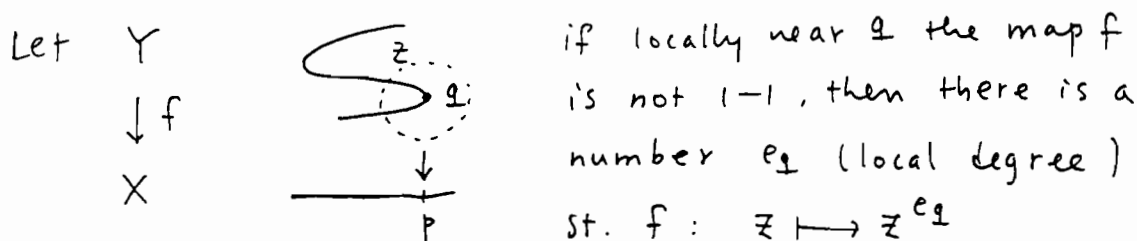 Let Y z if locally near q the map f
↓ f q is not 1-1, then there is a
number e_q (local degree)
X p st. f : z ↦ z^{e_q}